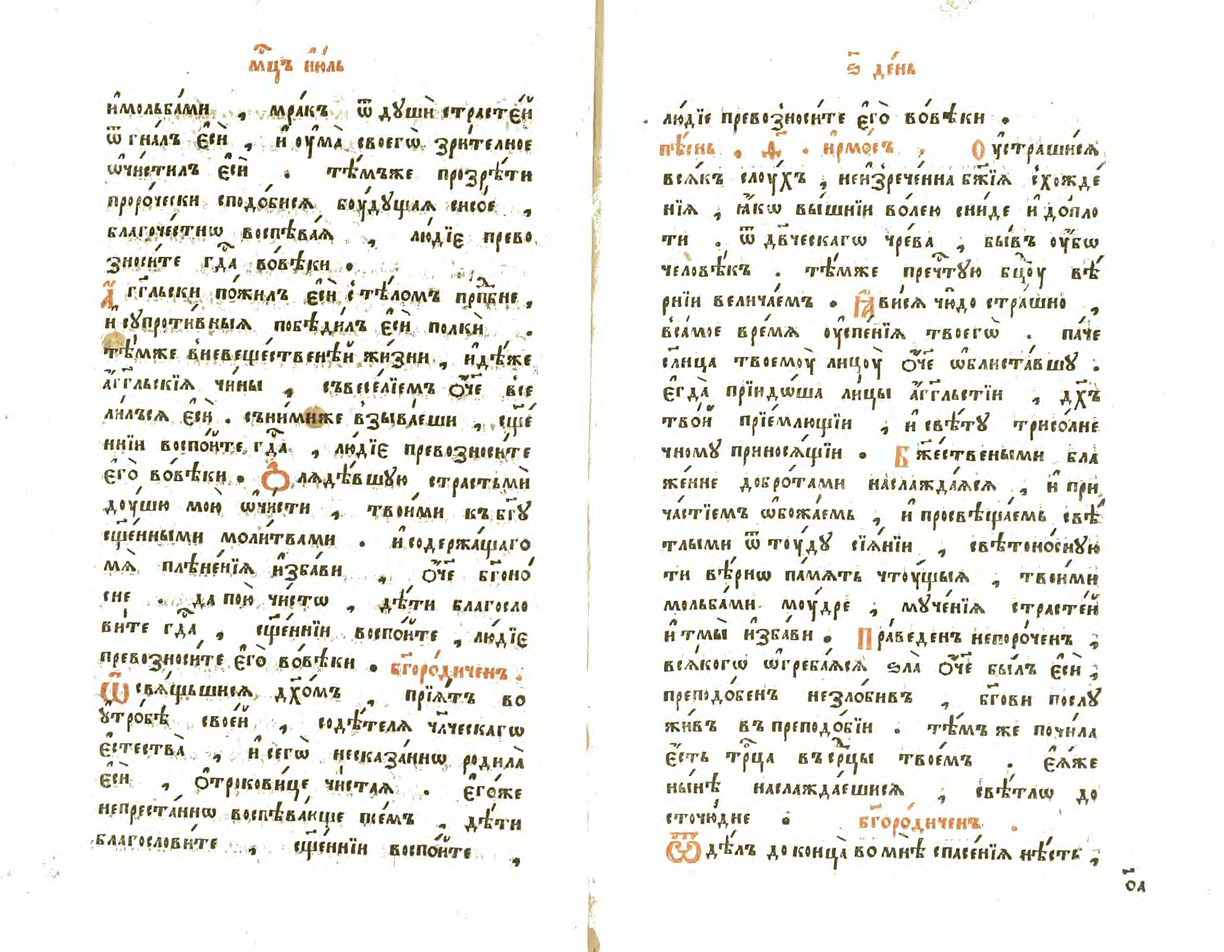 мⷭ҇цъ ию́ль
и҆мольба́ми , мра́къ ѿ душѝ страсте́й
ѿгна́лъ є҆сѝ , и҆ ᲂу҆ма̀ своегѡ̀ зри́тельное
ѡ҆чи́стилъ є҆сѝ . тѣ́мъже прозрѣ́ти
проро́чески сподо́бися бꙋ́дꙋщая сисо́е ,
благоче́стнѡ воспѣва́я , лю́дїе прево
зноси́те гдⷭ҇а во́вѣки .
А҆́гг҃льски по́жилъ є҆сѝ с̾тѣ́ломъ прпⷣбне ,
и҆ сꙋпроти́вныя побѣди́лъ є҆сѝ полкѝ .
тѣ́мже в̾невеще́ственѣй жи́зни , и҆дѣ́же
а҆́гг҃льскїя чи́ны , съвесе́лїемъ ѻ҆́ч҃е все
ли́лъся є҆сѝ . съни́миже взыва́еши , сщ҃е
ннїи воспо́йте гдⷭ҇а , лю́дїе превозноси́те
є҆го̀ во́вѣки . Ѻ҆лядѣ́вшꙋю страстьмѝ
дꙋ́шꙋ мою̀ ѡ҆чи́сти , твои́ми къ бг҃ꙋ
сщ҃е́нными моли́твами . и҆ содержа́щаго
мя̀ плѣне́нїя и҆зба́ви , ѻ҆́ч҃е бг҃оно́
сне . да пою̀ чи́стѡ , дѣ́ти благосло
ви́те гдⷭ҇а , сщ҃е́ннїи воспо́йте , лю́дїе
превозноси́те є҆го̀ во́вѣки . бг҃оро́диченъ .
Ѡ҆свя́щьшися дх҃о́мъ , прїя́тъ во
ᲂу҆тро́бѣ свое́й , содѣ́теля чл҃ческагѡ
є҆стества̀ , и҆ сегѡ̀ несказа́ннѡ родила̀
є҆сѝ , ѻ҆трокови́це чи́стая . є҆го́же
непреста́ннѡ воспѣва́юще пїе́мъ , дѣ́ти
благослови́те , сщ҃е́ннїи воспо́йте ,
ѕ҃ де́нь
лю́дїе превозноси́те є҆го̀ во́вѣки .
пѣ́снь , ѳ҃ . и҆рмо́съ , Ꙋ҆страши́ся
вся́къ слꙋ́хъ , неи́зрече́нна бж҃їя схожде́
нїя , ꙗ҆́кѡ вы́шнїи во́лею сни́де и҆ до́пло
ти . ѿ дв҃ческагѡ чре́ва , бы́въ ᲂу҆́бѡ
человѣ́къ . тѣ́мже пречⷭ҇тꙋю бц҃ꙋ вѣ́
рнїи велича́емъ . Ꙗ҆ви́ся чю́до стра́шно ,
в̾са́мое вре́мя ᲂу҆спе́нїя твоегѡ̀ . па́че
сл҃нца твоемꙋ̀ лицꙋ̀ ѻ҆́ч҃е ѡ҆блиста́вшꙋ .
є҆гда̀ прїидо́ша ли́цы а҆́гг҃льстїи , дх҃ъ
тво́й прїе́млющїи , и҆ свѣ́тꙋ трисо́лне
чномꙋ принося́щїи . Бж҃ественыими бла
же́нне добро́тами наслажда́яся , и҆ при
ча́стїемъ ѡ҆божа́емь , и҆ просвѣща́емь свѣ́
тлыми ѿтꙋ́дꙋ сїя́нїи , свѣтоно́снꙋю
ти вѣ́рнѡ па́мять чтꙋ́щыя , твои́ми
мольба́ми мꙋ́дре , мꙋче́нїя страсте́й
и҆ тмы̀ и҆зба́ви . Пра́веденъ непоро́ченъ ,
вся́когѡ ѡ҆греба́яся ѕла̀ ѻ҆́ч҃е бы́лъ є҆сѝ ,
преподо́бенъ незло́бивъ , бг҃ови послꙋ
жи́въ въ преподо́бїи . тѣ́мъ же почила
є҆́сть трⷪ҇ца въ се́рⷣцы твое́мъ . є҆я́же
ны́нѣ наслажда́ешися , свѣ́тлѡ до
сточю́дне . бг҃оро́диченъ .
Ѿдѣ́лъ до конца̀ во мнѣ̀ спасе́нїя нѣ́сть ,
ѻ҃а